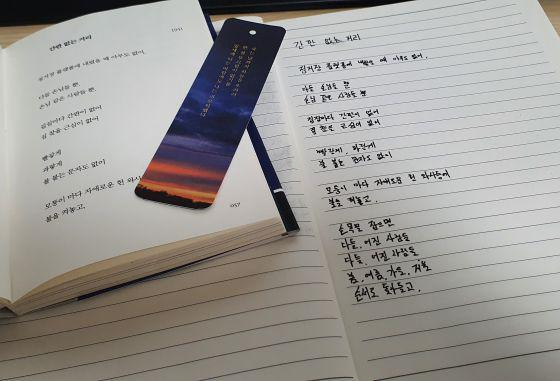 1941
간판 없는 거리
정거장 플랫폼에 내렸을 때 아무도 없어,
다들 손님들뿐,
손님 같은 사람들뿐,
집집마다 간판이 없어
집 찾을 근심이 없어
빨갛게
파랗게
불 붙는 문자도 없이
모퉁이마다 자애로운 헌 와사
불을 켜놓고,
057
간판 없는 거리
정거장 플랫폼에 내렸을 때 아무도 없어,
다들 손님들 뿐
손님 같은 사람들 뿐
집집마다 간판이 없어
집 찾을 근심이 없어
빨갛게, 파랗게
불 붙는 문자도 없이
모퉁이 마다 자애로운 헌 와사등에
불을 켜놓고,
손목을 잡으면
다들, 어진 사람들
다들, 어진 사람들
봄, 여름, 가을, 겨울
순서로 돌아들고.